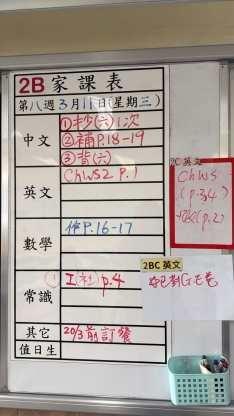 2B 家課表
第八週3月11日(星期三)
中文
①抄(六)1次
②補P.18-19
③背(六)
英文
Ch WS2 P.1
數學
作P.16-17
常識
① 工(社)p.4
其它
20/3前訂餐
值日生
2C 英文
Ch WS
(p.3,4)
(p.2)
2BC 英文